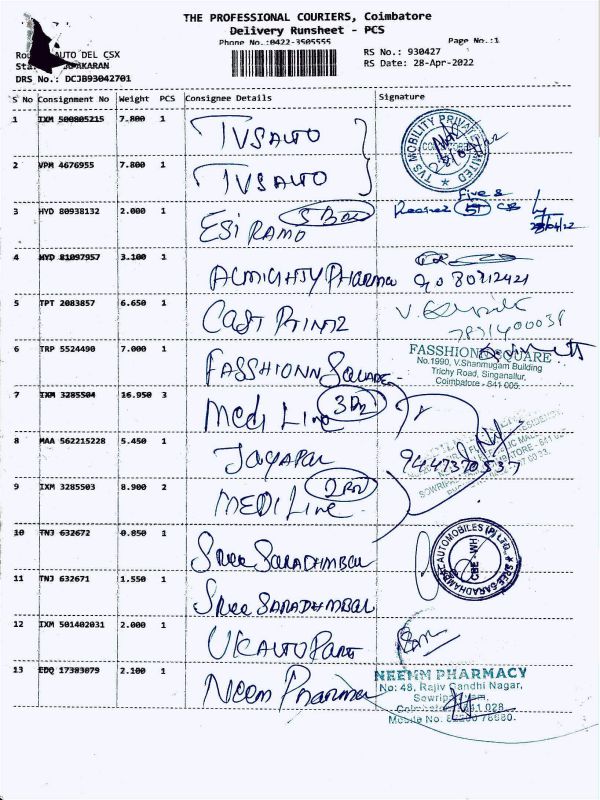 THE PROFESSIONAL COURIERS, Coimbatore
Delivery Runsheet - PCS
Phone No.:0422-3505555
Page No.:1
RS No.: 930427
AUTO DEL CSX
RS Date: 28-Apr-2022
DRS No.: DCJB93042701
S No Consignment No Weight PCS Consignee Details Signature
1 IXM 500805215 7.800 1 TVS AUTO
TVS MOBILITY PRIVATE LIMITED
2 VPM 4676955 7.800 1 TVS AUTO
3 HYD 80938132 2.000 1 ESI RAMO 5 Box
Five
4 HYD 81097957 3.100 1 ALMIGHTY PHARMA
5 TPT 2083857 6.650 1 CAST PRINTZ
6 TRP 5524490 7.000 1 FASSHIONN SQUARE
FASSHIONN SQUARE
No.1990, V.Shanmugam Building
Trichy Road, Singanallur,
Coimbatore - 641 005.
7 IXM 3285504 16.950 3 Medi Line
8 MAA 562215228 5.450 1
9447370537
9 IXM 3285503 8.900 2 MEDI Line
10 TNJ 632672 0.850 1 Sree Saradhmbal
SREE SARADHAMBAL AUTOMOBILES (P) LTD.,
CBE - WH
11 TNJ 632671 1.550 1 Sree SARADHMBAL
12 IXM 501402031 2.000 1 UK AUTO Part
13 EDQ 17383079 2.100 1 Neem Pharma
NEEMM PHARMACY
No: 48, Rajiv Gandhi Nagar,
641 028
Mobile No.